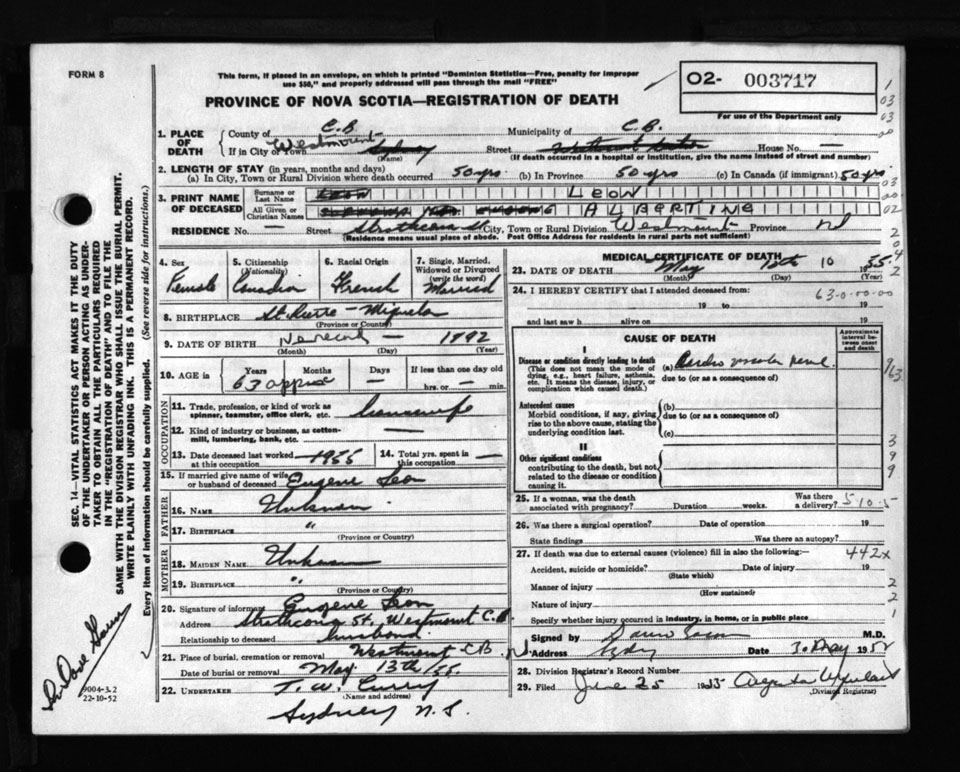 FORM 8
This form, if placed in an envelope, on which is printed "Dominion Statistics—Free, penalty for improper
use $50," and properly addressed will pass through the mail "FREE"
O2- 003717
For use of the Department only
PROVINCE OF NOVA SCOTIA—REGISTRATION OF DEATH
1. PLACE OF DEATH
County of C.B. Municipality of C.B.
If in City or Town Westmount Sydney (Name) Street House No. —
(If death occurred in a hospital or institution, give the name instead of street and number)
2. LENGTH OF STAY (in years, months and days)
(a) In City, Town or Rural Division where death occurred 50 yrs. (b) In Province 50 yrs (c) In Canada (if immigrant) 50 yrs
3. PRINT NAME OF DECEASED
Surname or Last Name LEON
All Given or Christian Names ALBERTINE
RESIDENCE No. — Street Strathcona St City, Town or Rural Division Westmount Province
(Residence means usual place of abode. Post Office Address for residents in rural parts not sufficient)
4. Sex Female
5. Citizenship (Nationality) Canadian
6. Racial Origin French
7. Single, Married, Widowed or Divorced (write the word) Married
8. BIRTHPLACE St. Pierre - Miquelon
(Province or Country)
9. DATE OF BIRTH No record — 1892
(Month) (Day) (Year)
10. AGE in Years Months Days If less than one day old
63 approx — — hrs. or — min.
OCCUPATION
11. Trade, profession, or kind of work as spinner, teamster, office clerk, etc. housewife
12. Kind of industry or business, as cotton-mill, lumbering, bank, etc. —
13. Date deceased last worked at this occupation 1955
14. Total yrs. spent in this occupation —
15. If married give name of wife or husband of deceased Eugene Leon
FATHER
16. NAME Unknown
17. BIRTHPLACE "
(Province or Country)
MOTHER
18. MAIDEN NAME Unknown
19. BIRTHPLACE "
(Province or Country)
20. Signature of informant Eugene Leon
Address Strathcona St. Westmount C.B.
Relationship to deceased husband
21. Place of burial, cremation or removal Westmount C.B.
Date of burial or removal May 13th/55.
22. UNDERTAKER T. W. Curry
(Name and address)
Sydney N.S.
MEDICAL CERTIFICATE OF DEATH
23. DATE OF DEATH May 10 55
(Month) (Day)
24. I HEREBY CERTIFY that I attended deceased from:
63-0-00-00
19 to 19
and last saw h alive on 19
CAUSE OF DEATH
Approximate interval between onset and death
I
Disease or condition directly leading to death
(This does not mean the mode of dying, e.g., heart failure, asthenia, etc. It means the disease, injury, or complication which caused death.)
(a) Cardio vascular renal
due to (or as a consequence of)
Antecedent causes
Morbid conditions, if any, giving rise to the above cause, stating the underlying condition last.
(b)
due to (or as a consequence of)
(c)
II
Other significant conditions
contributing to the death, but not related to the disease or condition causing it.
25. If a woman, was the death associated with pregnancy? Duration weeks. Was there a delivery? 510.5
26. Was there a surgical operation? Date of operation 19
State findings Was there an autopsy?
27. If death was due to external causes (violence) fill in also the following:— 442x
Accident, suicide or homicide? Date of injury 19
(State which)
Manner of injury
(How sustained)
Nature of injury
Specify whether injury occurred in industry, in home, or in public place
Signed by M.D.
Address Sydney Date May 195
28. Division Registrar's Record Number
29. Filed June 25 1955
(Division Registrar)
SEC. 14—VITAL STATISTICS ACT MAKES IT THE DUTY
OF THE UNDERTAKER OR PERSON ACTING AS UNDER-
TAKER TO OBTAIN ALL THE PARTICULARS REQUIRED
IN THE "REGISTRATION OF DEATH" AND TO FILE THE
SAME WITH THE DIVISION REGISTRAR WHO SHALL ISSUE THE BURIAL PERMIT.
WRITE PLAINLY WITH UNFADING INK. THIS IS A PERMANENT RECORD.
Every item of information should be carefully supplied. (See reverse side for instructions.)
9004-3.2
22-10-52